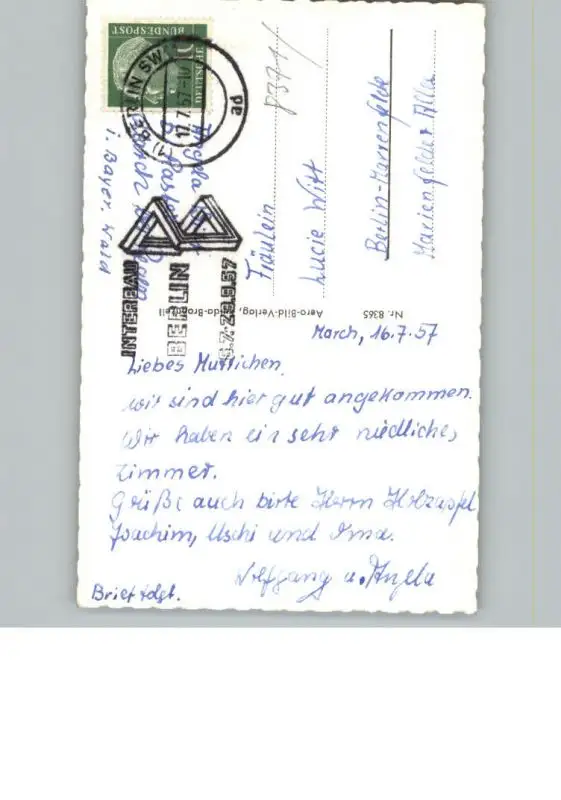 DEUTSCHE
BUNDESPOST
10
(1) BERLIN SW
17.7.57-10
ad
INTERBAU
BERLIN
6.7.-29.9.57
Angela
b.
March
i. Bayer. Wald
8371/
Fräulein
Lucie Witt
Berlin-Marienfelde
Marienfelder Allee
Aero-Bild-Verlag,
Nr. 8365
March, 16.7.57
Liebes Muttichen,
wir sind hier gut angekommen.
Wir haben ein sehr niedliches
Zimmer.
Grüße auch bitte Herrn Holzapfel,
Joachim, Uschi und Oma.
Wolfgang u. Angela
Brief folgt.